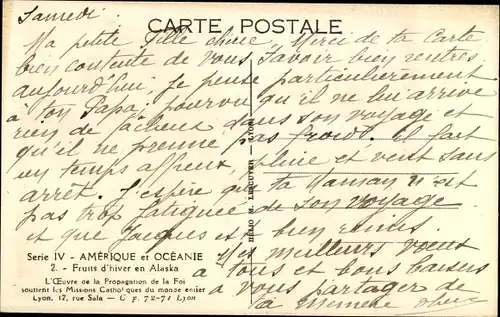 Samedi
CARTE POSTALE
Ma petite Fille chérie, Merci de ta Carte
bien contente de vous savoir bien rentrés
aujourd'hui, je pense particulièrement
à ton Papa; pourvu qu'il ne lui arrive
rien de fâcheux dans son voyage et
qu'il ne prenne pas froid. Il fait
un temps affreux, pluie et vent sans
arrêt. J'espère que ta Maman n'est
pas trop fatiguée de son voyage
et que Jacques est bien remis.
Mes meilleurs vœux
à tous et bons baisers
à vous partager de
ta
HÉLIO M. LESCUYER LYON
Serie IV - AMÉRIQUE et OCÉANIE
2. - Fruits d'hiver en Alaska
L'Œuvre de la Propagation de la Foi
soutient les Missions Catholiques du monde entier
Lyon, 12, rue Sala — C P. 72-71 Lyon